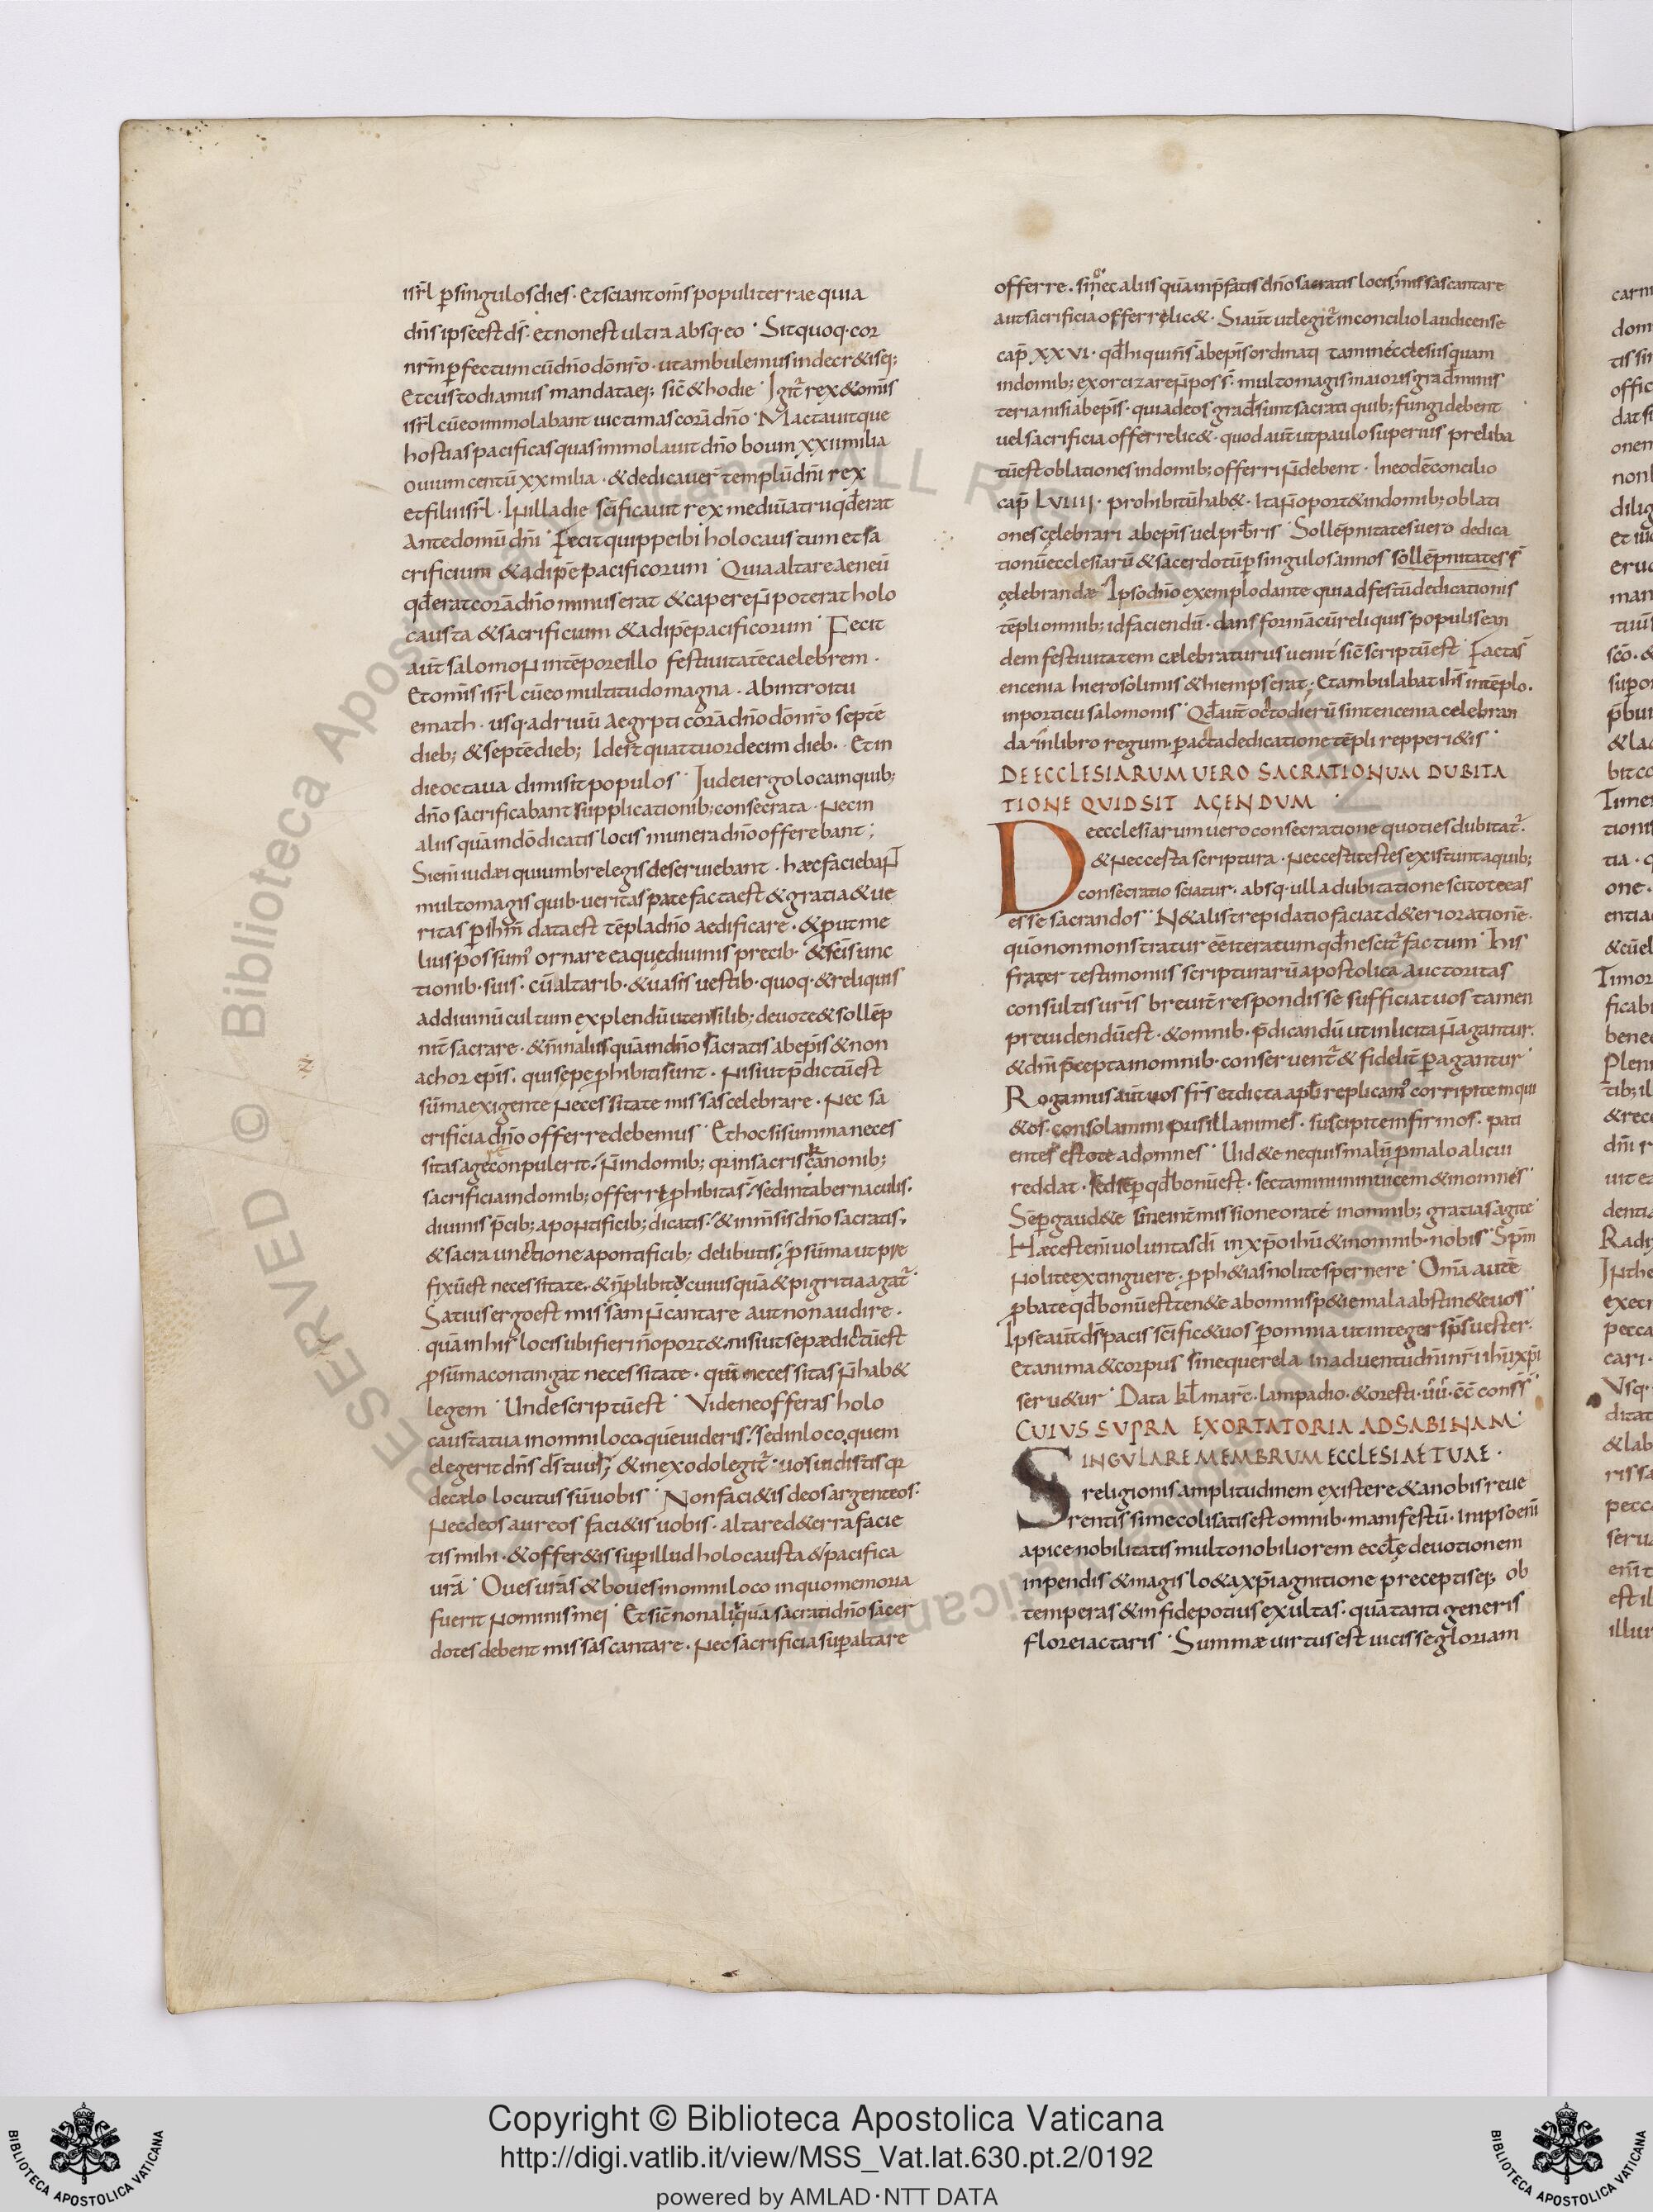 isrl̄ p̄singulosdies · Etsciantom̄s populi terrae quia
dn̄s ipse est dš · et non est ultra absq· eo · Sit quoq· cor
nr̄m p̄fectum cū dn̄o dōnr̄o · ut ambulemus in decr&is ei;
Et custodiamus mandata ei; sic̄ & hodie · Igit̄ rex & om̄is
isrl̄ cū eo immolabant uictimas corā dn̄o · Mactauitque
hostias pacificas quas immolauit dn̄o boum xxii milia
ouium centū xx milia · & dedicauer̄ templū dn̄i rex
et filii isrl̄ · In illa die sc̄ificauit rex mediū atrii qd̄ erat
ante domū dn̄i · Fecit quippe ibi holocaustum et sa
crificium & adipē pacificorum · Quia altare aeneū
qd̄ erat corā dn̄o minus erat & capere n̄ poterat holo
causta & sacrificium & adipē pacificorum · Fecit
aut̄ salomon in tēpore illo festiuitatē caelebrem ·
Et om̄is isrl̄ cū eo multitudo magna · ab introitu
emath · usq· ad riuū aegypti corā dn̄o dōnr̄o septē
dieb; & septē dieb; Idest quattuordecim dieb· Et in
die octaua dimisit populos · Iudei ergo loca in quib;
dn̄o sacrificabant supplicationib; consecrata · Nec in
aliis quā in dō dicatis locis munera dn̄o offerebant;
Si em̄ iudaei qui umbre legis deseruiebant · haec faciebant
multo magis quib· ueritas patefacta est & gratia & ue
ritas p̄ ihm̄ data est tēpla dn̄o aedificare · & p̄ut me
lius possum̄ ornare eaquę diuinis precib· & sc̄is unc
tionib· suis · cū altarib· & uasis uestib· quoq· & reliquis
ad diuinū cultum explendū utensilib; deuote & sollēp
nit̄ sacrare · & n̄ in aliis quā in dn̄o sacratis ab ep̄is & non
a chorep̄is · qui sepę p̄hibiti sunt · nisi ut p̄dictū est
sūma exigente necessitate missas celebrare · Nec sa
crificia dn̄o offerre debemus · Et hoc si summa neces
sitas agere conpulerit · n̄ in domib; qr in sacris canonib;
sacrificia in domib; offerri p̄hibitā · sed in tabernaculis ·
diuinis p̄cib; a pontificib; dicatis · & in m̄sis dn̄o sacratis ·
& sacra unctione a pontificib; delibutis · p̄ sūma ut pre
fixū est necessitate · & n̄ p̄ libito cuiusquā & pigritia agat̄ ·
Satius ergo est missam n̄ cantare aut non audire ·
quā in his locis ubi fieri n̄ oport& · nisi ut sepe dictū est
p̄ sūma contingat necessitate · qm̄ necessitas n̄ hab&
legem · Unde scriptū est · Vide ne offeras holo
causta tua in omni loco quē uideris · sed in loco quem
elegerit dn̄s dš tuus · & in exodo legit̄ · uos uidistis qr
de caelo locutus sū uobis · Non faci&is deos argenteos ·
Nec deos aureos faci&is uobis · altare de terra facie
tis mihi · & offer&is sup̄ illud holocausta & pacifica
urā · Oues urās & boues in omni loco in quo memoria
fuerit nominis mei · Et sic̄ non alii quā sacrati dn̄o sacer
dotes debent missas cantare · Nec sacrificia sup̄ altare
offerre · sic̄ nec aliis quā in p̄fatis dn̄o sacratis locis missas cantare
aut sacrificia offerre lic& · Si aut̄ ut legit̄ in concilio laudicense
cap̄ XXVI · qd̄ hi qui n̄ s̄ ab ep̄is ordinati tam in ecclesiis quam
in domib; exorcizare n̄ poss̄ · multo magis maioris grad̄ minis
teria nisi ab ep̄is · qui ad eos grad̄ sunt sacrati quib; fungi debent
uel sacrificia offerre lic& · quod aut̄ ut paulo superius preliba
tū est oblationes in domib; offerri n̄ debent · In eodē concilio
cap̄ LVIIII · prohibitū hab& · Ita n̄ oport& in domib; oblati
ones cęlebrari ab ep̄is uel prb̄ris · Sollēpnitates uero dedica
tionū ecclesiarū & sacerdotū p̄ singulos annos sollēpnitates s̄
cęlebrandae · Ipso dn̄o exemplo dante qui ad festū dedicationis
tēpli omnib; id faciendū · dans formā cū reliquis populis ean
dem festiuitatem caelebraturus uenit sic̄ scriptū est · Facta s̄
encenia hierosolimis & hiemps erat · Et ambulabat ih̄s in tēplo ·
in porticu salomonis · Qd̄ aut̄ octo dierū sint encenia celebran
da in libro regum · p̄acta dedicatione tēpli repperi&is ·
DE ECCLESIARUM UERO SACRATIONUM DUBITA
TIONE QUID SIT AGENDUM ·
De ecclesiarum uero consecratione quoties dubitat̄ ·
& nec certa scriptura · nec certi testes existunt a quib;
consecratio sciatur · absq· ulla dubitatione scitote eas
esse sacrandos · N& alis trepidatio faciat d&eriorationē ·
quō non monstratur eē iteratum qd̄ nescit̄ factum · His
frater testimoniis scripturarū apostolica auctoritas
consultis uris̄ breuit̄ respondisse sufficiat uos tamen
preuidendū est · & omnib· p̄dicandū ut inlicita n̄ agantur ·
& dn̄i p̄cepta in omnib· conseruent̄ & fidelit̄ p̄agantur ·
Rogamus aut̄ uos fr̄s et dicta apl̄i replicam̄ corripite inqui
&os · consolamini pusillanimes · suscipite infirmos · pati
entes estote ad omnes · Uid&e ne quis malū p̄ malo alicui
reddat · sed sēp̄ qd̄ bonū est · sectamini inuicem & in omnes ·
Sēp̄ gaud&e sine int̄missione orate in omnib; gratias agite ·
Haec est em̄ uoluntas di̅ in xp̄o ihū & in omnib· nobis · Sp̄m
nolite extinguere · p̄ph&ias nolite spernere · Omā autē
p̄bate qd̄ bonū est ten&e ab omni spęcie mala abstin&e uos ·
Ipse aut̄ dš pacis sc̄ific& uos p̄ omnia ut integer sp̄s uester ·
Et anima & corpus sine querela in aduentu dn̄i nr̄i ihū xp̄i
seru&ur · Data kl̄ marc̄ · lampadio · & oresti · uū · cc̄ conss̄ ·
CUIUS SUPRA EXORTATORIA AD SABINAM ·
SINGULARE MEMBRUM ECCLESIAE TUAE ·
religionis amplitudinem existere & a nobis reue
rentissime coli satis est omnib· manifestū · In ipso em̄
apice nobilitatis multo nobiliorem eccl̄ę deuotionem
inpendis & magis lo&a xp̄i agnitione preceptis ei; ob
temperas & in fide potius exultas · quā tanti generis
flore iactaris · Summae uirtus est uicisse gloriam
Copyright © Biblioteca Apostolica Vaticana
http://digi.vatlib.it/view/MSS_Vat.lat.630.pt.2/0192
powered by AMLAD·NTT DATA